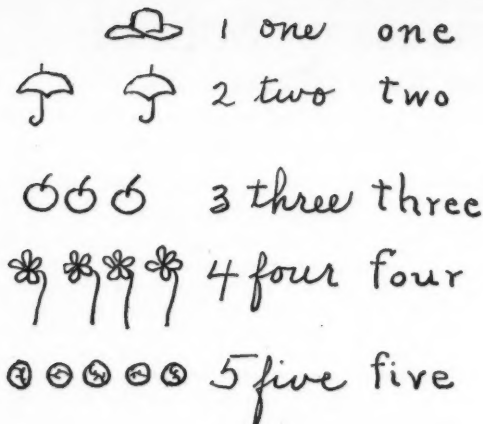 1 one one
2 two two
3 three three
4 four four
5 five five